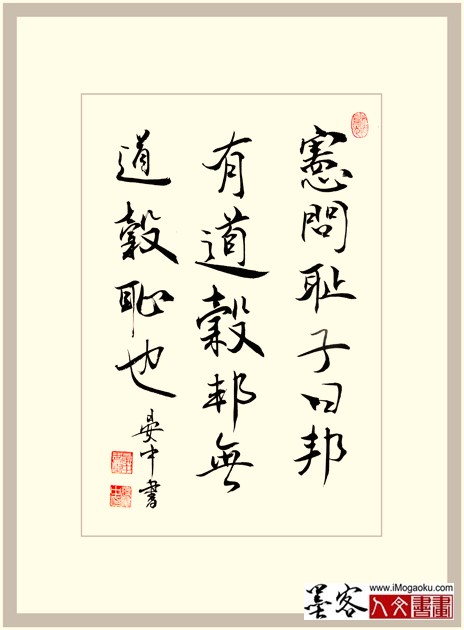 憲問耻子曰邦
有道穀邦無
道穀恥也
晏中書
墨客
www.iMogaoku.com
人文書畫